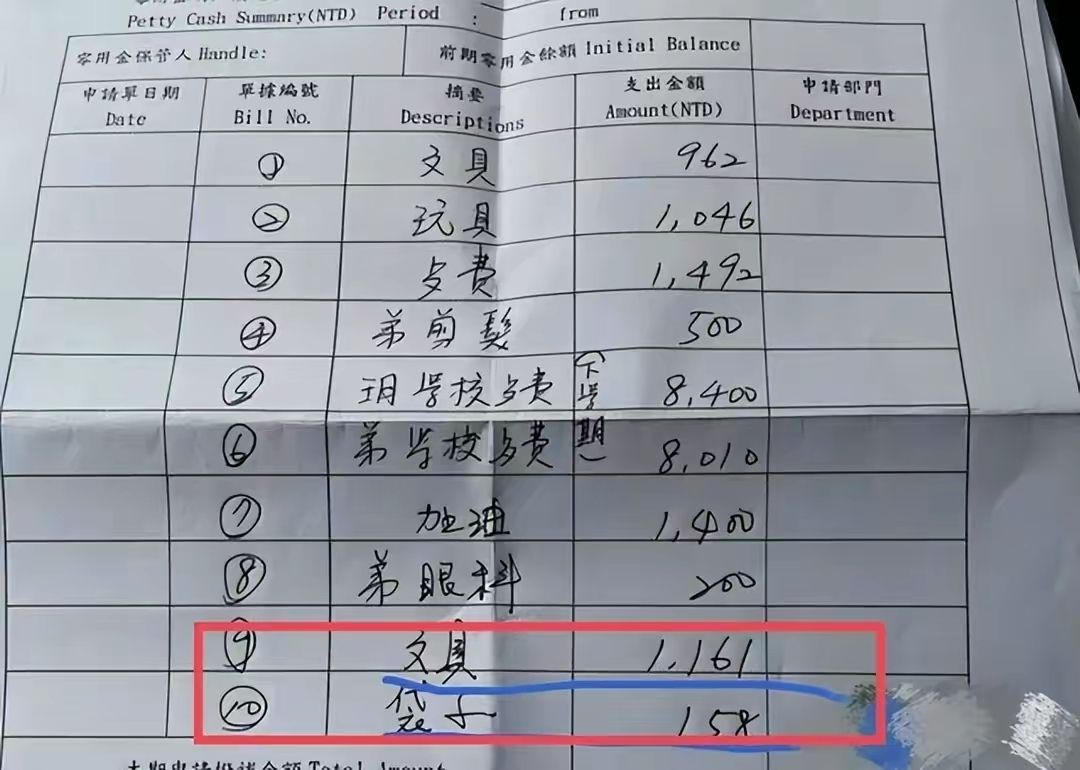 Petty Cash Summry(NTD) Period : from
零用金保管人 Handle: 前期零用金餘額 Initial Balance
申請單日期 單據編號 摘要 支出金額 申請部門
Date Bill No. Descriptions Amount(NTD) Department
① 文具 962
② 玩具 1,046
③ 餐費 1,492
④ 弟剪髮 500
⑤ 玥學校餐費 (下學期) 8,400
⑥ 弟學校餐費 8,010
⑦ 加油 1,400
⑧ 弟眼科 200
⑨ 文具 1,161
⑩ 袋子 158
Total Amount